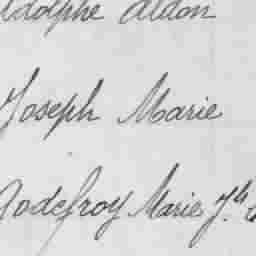 Adolphe Aldon
Joseph Marie
Godefroy Marie Jh